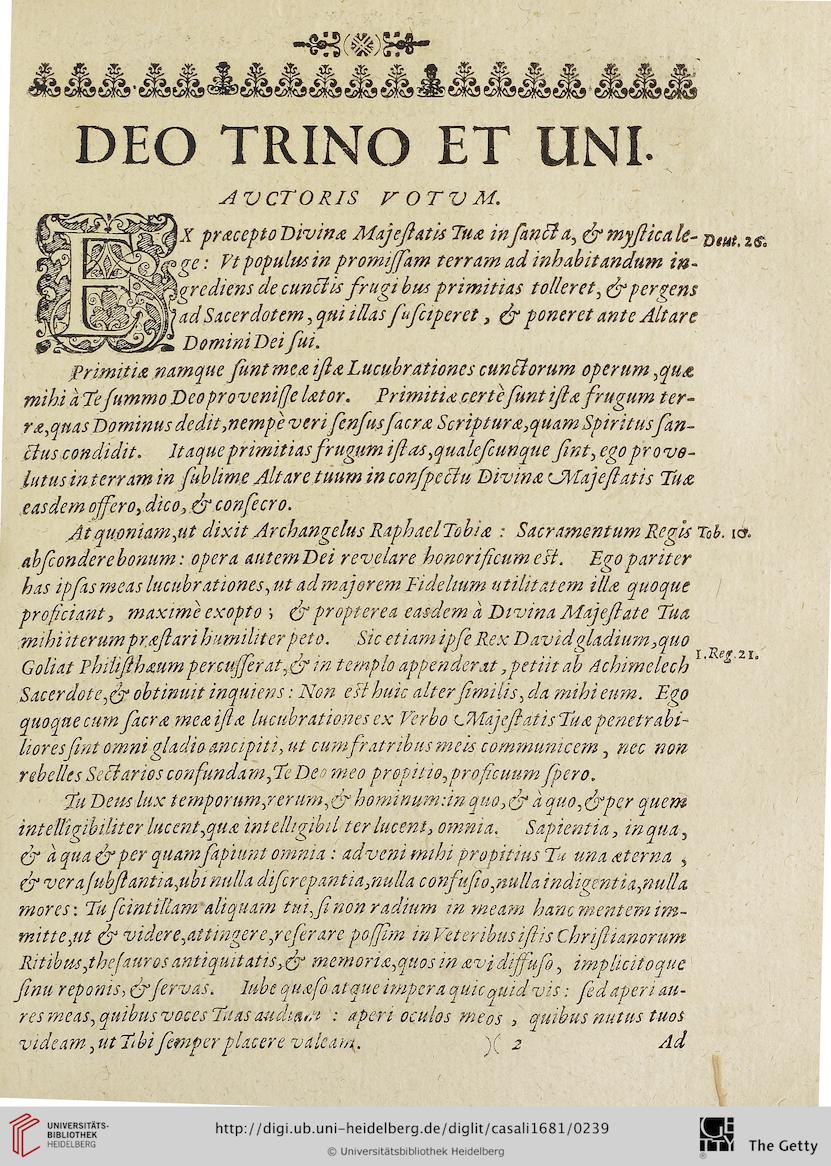 DEO TRINO ET UNI.
AVCTORIS VOTVM.
EX præcepto Divinæ Majeſtatis Tuæ in ſancta, & myſtica le- Deut. 26.
ge: Vt populus in promiſſam terram ad inhabitandum in-
grediens de cunctis frugibus primitias tolleret, & pergens
ad Sacerdotem, qui illas ſuſciperet, & poneret ante Altare
Domini Dei ſui.
Primitiæ namque ſunt meæ iſtæ Lucubrationes cunctorum operum, quæ
mihi à Te ſummo Deo proveniſſe lætor. Primitiæ certè ſunt iſtæ frugum ter-
ræ, quas Dominus dedit, nempè veri ſenſus ſacræ Scripturæ, quam Spiritus ſan-
ctus condidit. Itaque primitias frugum iſtas, qualeſcunque ſint, ego provo-
lutus in terram in ſublime Altare tuum in conſpectu Divinæ Majeſtatis Tuæ
easdem offero, dico, & conſecro.
At quoniam, ut dixit Archangelus Raphael Tobiæ: Sacramentum Regis Tob. 10.
abſcondere bonum: opera autem Dei revelare honorificum eſt. Ego pariter
has ipſas meas lucubrationes, ut ad majorem Fidelium utilitatem illæ quoque
proficiant, maximè exopto; & propterea easdem à Divina Majeſtate Tua
mihi iterum præſtari humiliter peto. Sic etiam ipſe Rex David gladium, quo
Goliat Philiſthæum percuſſerat, & in templo appenderat, petiit ab Achimelech 1. Reg. 21.
Sacerdote, & obtinuit inquiens: Non eſt huic alter ſimilis, da mihi eum. Ego
quoque cum ſacræ meæ iſtæ lucubrationes ex Verbo Majeſtatis Tuæ penetrabi-
liores ſint omni gladio ancipiti, ut cum fratribus meis communicem, nec non
rebelles Sectarios confundam, Te Deo meo propitio, proficuum ſpero.
Tu Deus lux temporum, rerum, & hominum: in quo, & à quo, & per quem
intelligibiliter lucent, quæ intelligibil ter lucent, omnia. Sapientia, in qua,
& à qua & per quam ſapiunt omnia: adveni mihi propitius Tu una æterna,
& vera ſubſtantia, ubi nulla diſcrepantia, nulla confuſio, nulla indigentia, nulla
mores: Tu ſcintillam aliquam tui, ſi non radium in meam hanc mentem im-
mitte, ut & videre, attingere, reſerare poſſim in Veteribus iſtis Chriſtianorum
Ritibus, theſauros antiquitatis, & memoriæ, quos in ævi diffuſo, implicitoque
ſinu reponis, & ſervas. Iube quæſo atque impera quicquid vis: ſed aperi au-
res meas, quibus voces Tuas audiam: aperi oculos meos, quibus nutus tuos
videam, ut Tibi ſemper placere valeam. )( 2 Ad
UNIVERSITÄTS-
BIBLIOTHEK
HEIDELBERG
http://digi.ub.uni-heidelberg.de/diglit/casali1681/0239
© Universitätsbibliothek Heidelberg
GETTY
The Getty